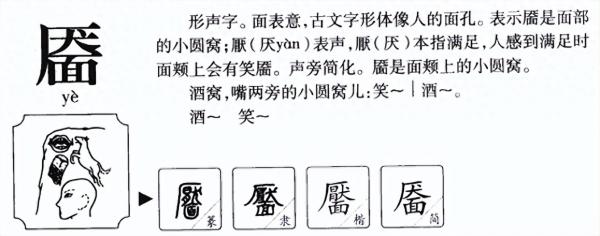 靥
yè
形声字。面表意,古文字形体像人的面孔。表示靥是面部
的小圆窝;厭(厌yàn)表声,厭(厌)本指满足,人感到满足时
面颊上会有笑靥。声旁简化。靥是面颊上的小圆窝。
酒窝,嘴两旁的小圆窝儿:笑～|酒～。
酒～ 笑～
靨 篆 靨 隶 靨 楷 靥 简